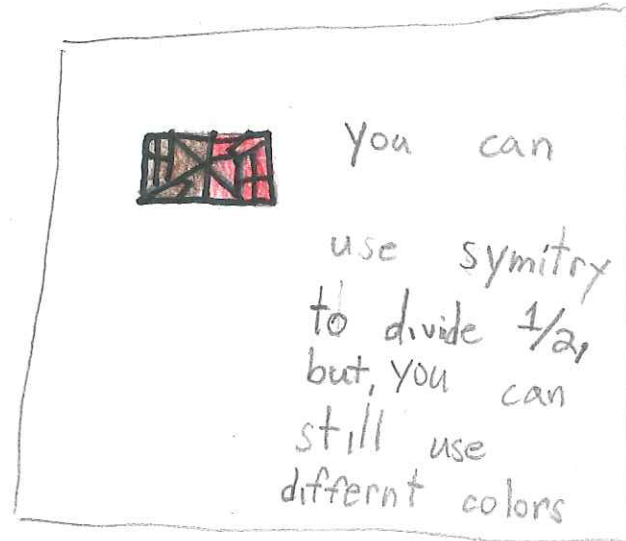 you can
use symitry
to divide 1/2,
but, you can
still use
differnt colors